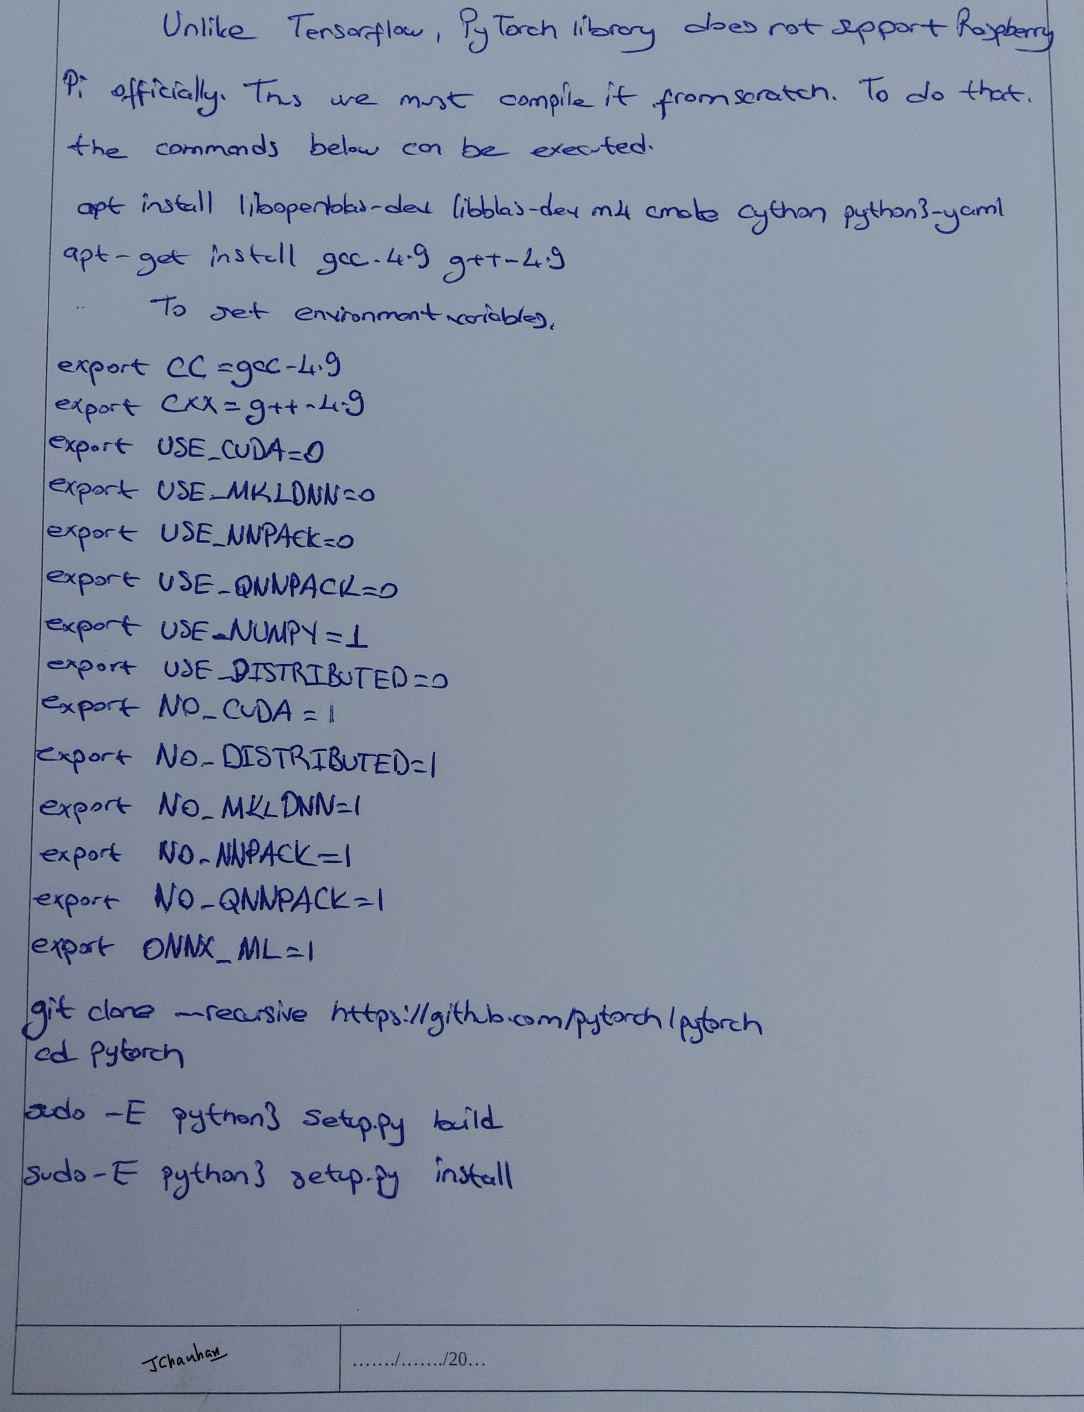 Unlike Tensorflow, PyTorch library does not support Raspberry
Pi officially. Thus we must compile it from scratch. To do that.
the commands below can be executed.
apt install libopenblas-dev libblas-dev m4 cmake cython python3-yaml
apt-get install gcc-4.9 g++-4.9
To set environment variables,
export CC=gcc-4.9
export CXX=g++-4.9
export USE_CUDA=0
export USE_MKLDNN=0
export USE_NNPACK=0
export USE_QNNPACK=0
export USE_NUMPY=1
export USE_DISTRIBUTED=0
export NO_CUDA=1
export NO_DISTRIBUTED=1
export NO_MKLDNN=1
export NO_NNPACK=1
export NO_QNNPACK=1
export ONNX_ML=1
git clone --recursive https://github.com/pytorch/pytorch
cd pytorch
sudo -E python3 setup.py build
sudo -E python3 setup.py install
JChauhan
......./......./20...